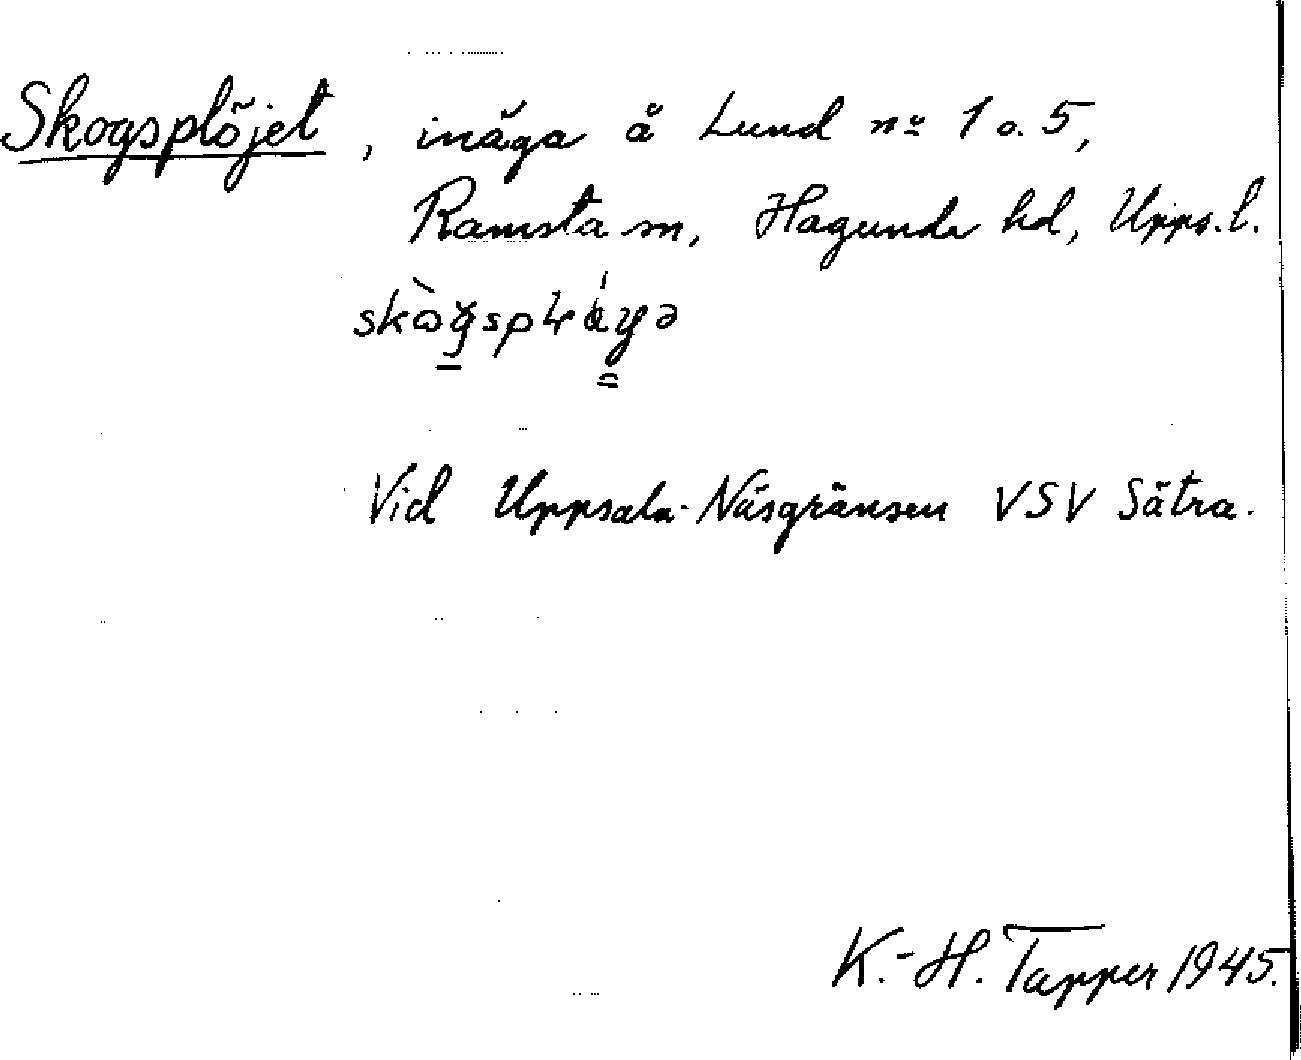 Skogsplöjet, inäga å Lund nº 1 o. 5,
Ramsta sn, Hagunda hd, Upps. l.
Vid Uppsala-Näsgränsen VSV Sätra.
K.-H. Tapper 1945.